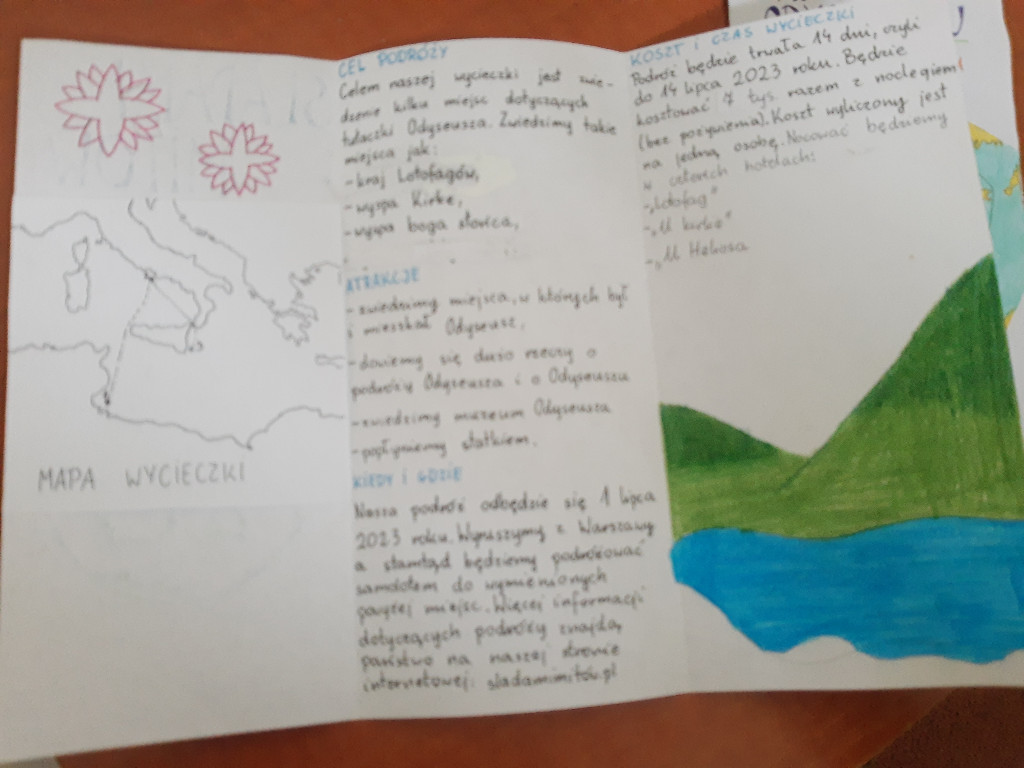 MAPA WYCIECZKI
CEL PODRÓŻY
Celem naszej wycieczki jest zwie-
dzenie kilku miejsc dotyczących
tułaczki Odyseusza. Zwiedzimy takie
miejsca jak:
- kraj Lotofagów,
- wyspa Kirke,
- wyspa boga słońca,
ATRAKCJE
- zwiedzimy miejsca, w których był
i mieszkał Odyseusz,
- dowiemy się dużo rzeczy o
podróży Odyseusza i o Odyseuszu
- zwiedzimy muzeum Odyseusza
- popłyniemy statkiem.
KIEDY I GDZIE
Nasza podróż odbędzie się 1 lipca
2023 roku. Wyruszymy z Warszawy
a stamtąd będziemy podróżować
samolotem do wymienionych
powyżej miejsc. Więcej informacji
dotyczących podróży znajdą
państwo na naszej stronie
internetowej: sladamimitów.pl
KOSZT I CZAS WYCIECZKI
Podróż będzie trwała 14 dni, czyli
do 14 lipca 2023 roku. Będzie
kosztować 7 tys. razem z noclegiem
(bez pożywienia). Koszt wyliczony jest
na jedną osobę. Nocować będziemy
w czterech hotelach:
- „Lotofag"
- „U Kirke"
- „U Heliosa